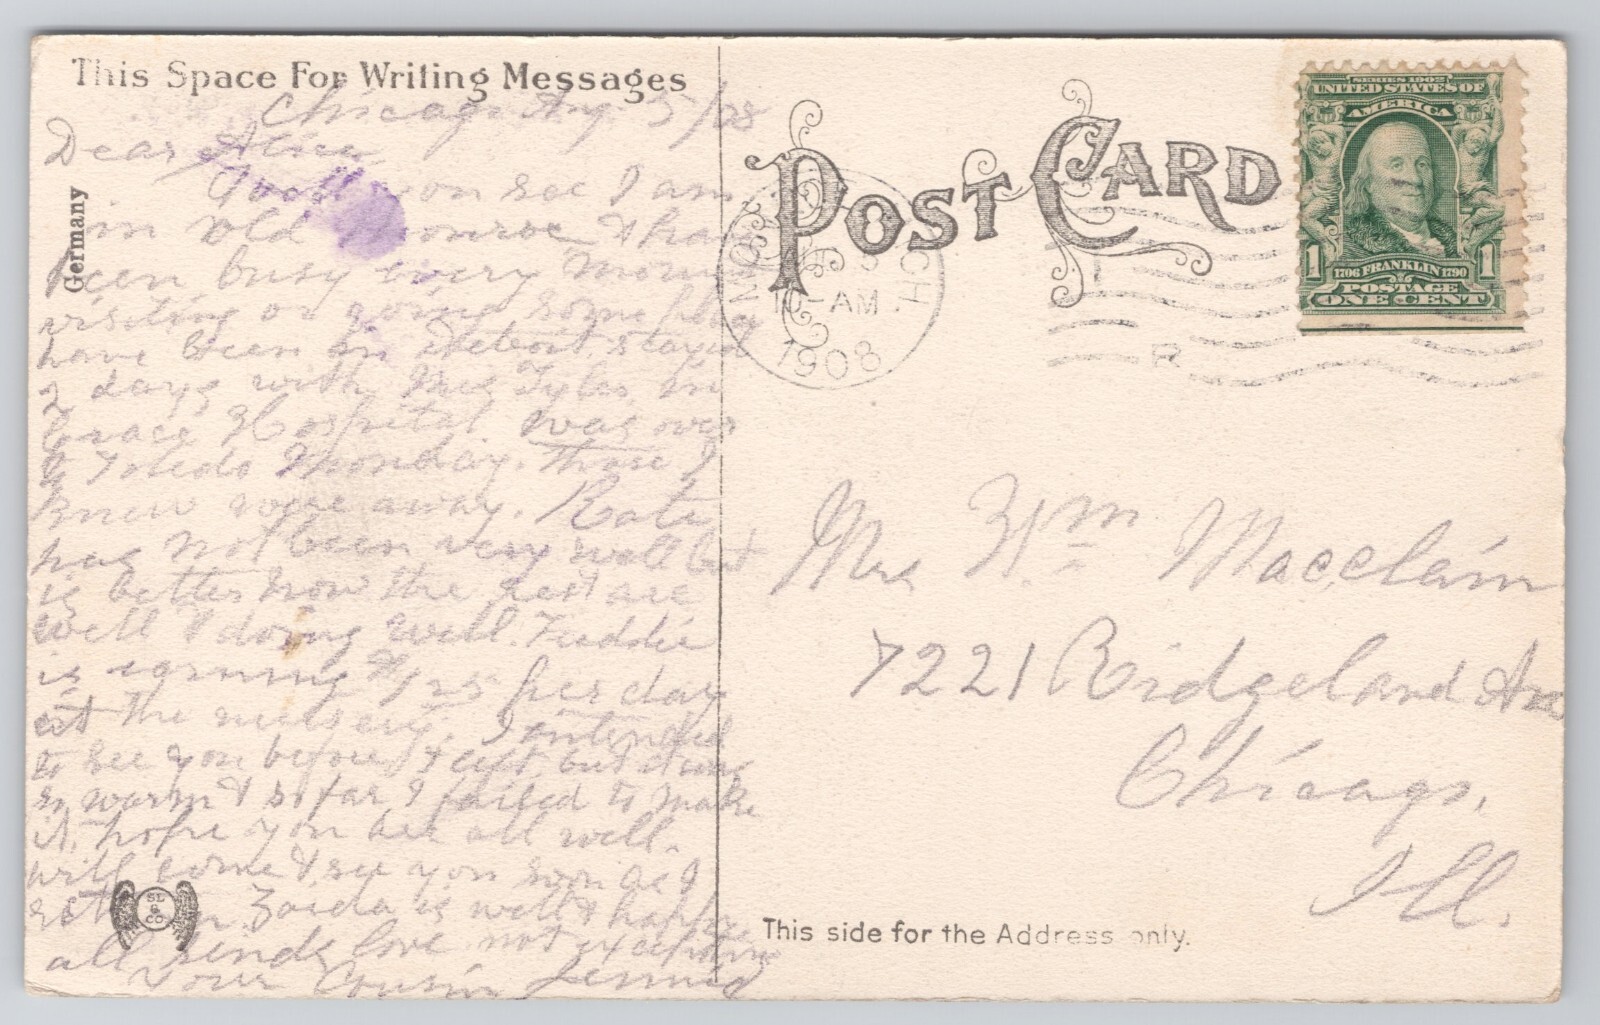 This Space For Writing Messages
Chicago Aug 5/08
Dear Alice
Well you see I am
in old Monroe & have
been busy every moment
visiting or going some place
have been in Detroit, stayed
2 days with Mrs Tyler, in
Grace Hospital was over
to Toledo Monday. Those I
knew were away. Kate
has not been very well but
is better now the rest are
well & doing well. Freddie
is earning $1.25 per day
at the nursery. I intended
to see you before I left but it was
so warm & so far I failed to make
it, hope you are all well.
will come & see you soon as I
return. Zaida is well & happy
all sends love not excepting
your Cousin Jennie
Germany
SB & CO
POST CARD
MONROE MICH.
AUG 5
10 - AM
1908
R
SERIES 1902
UNITED STATES OF
AMERICA
1 1706 FRANKLIN 1790 1
POSTAGE
ONE CENT
Mrs Wm Macclain
7221 Ridgeland Ave
Chicago,
Ill.
This side for the Address only.